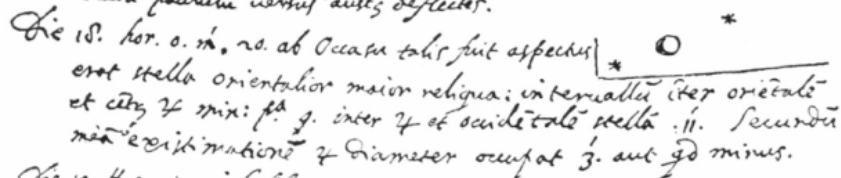 versus austr. deflectes.
Die 18. hor. 0. m. 20. ab Occasu talis fuit aspectus
erat stella orientalior maior reliqua: intervallū īter oriētalē
et 4 min: pa 9. inter ♃ et occidētalē stellā .11. Secundū
meā existimationē ♃ diameter occupat 3. aut qd minus.